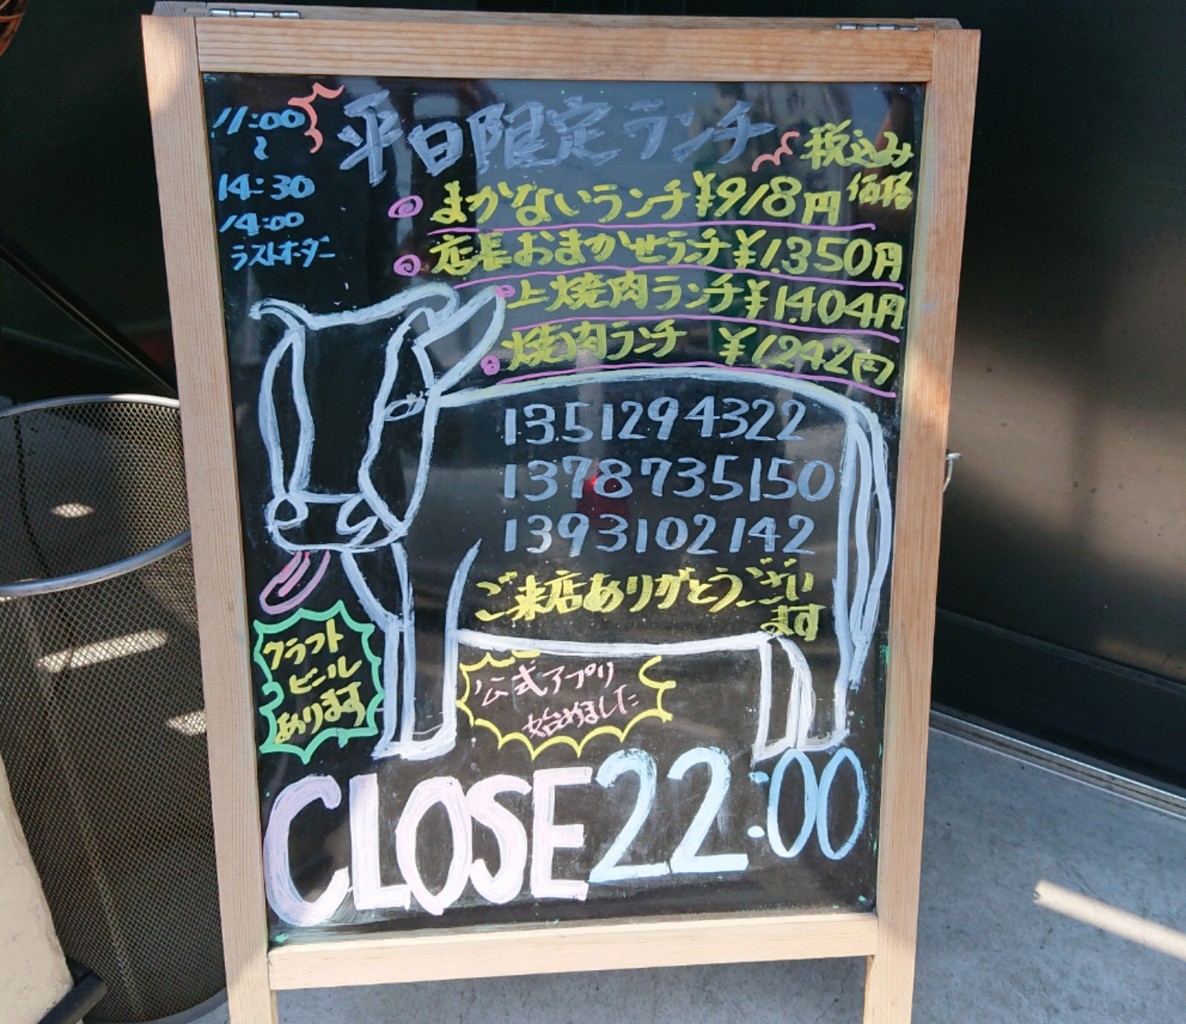 11:00
~
14:30
14:00
ラストオーダー
平日限定ランチ
税込み
価格
まかないランチ¥918円
店長おまかせランチ¥1.350円
上焼肉ランチ¥1.404円
焼肉ランチ ¥1.242円
1351294322
1378735150
1393102142
ご来店ありがとうござい
ます
クラフト
ビール
あります
公式アプリ
始めました
CLOSE22:00